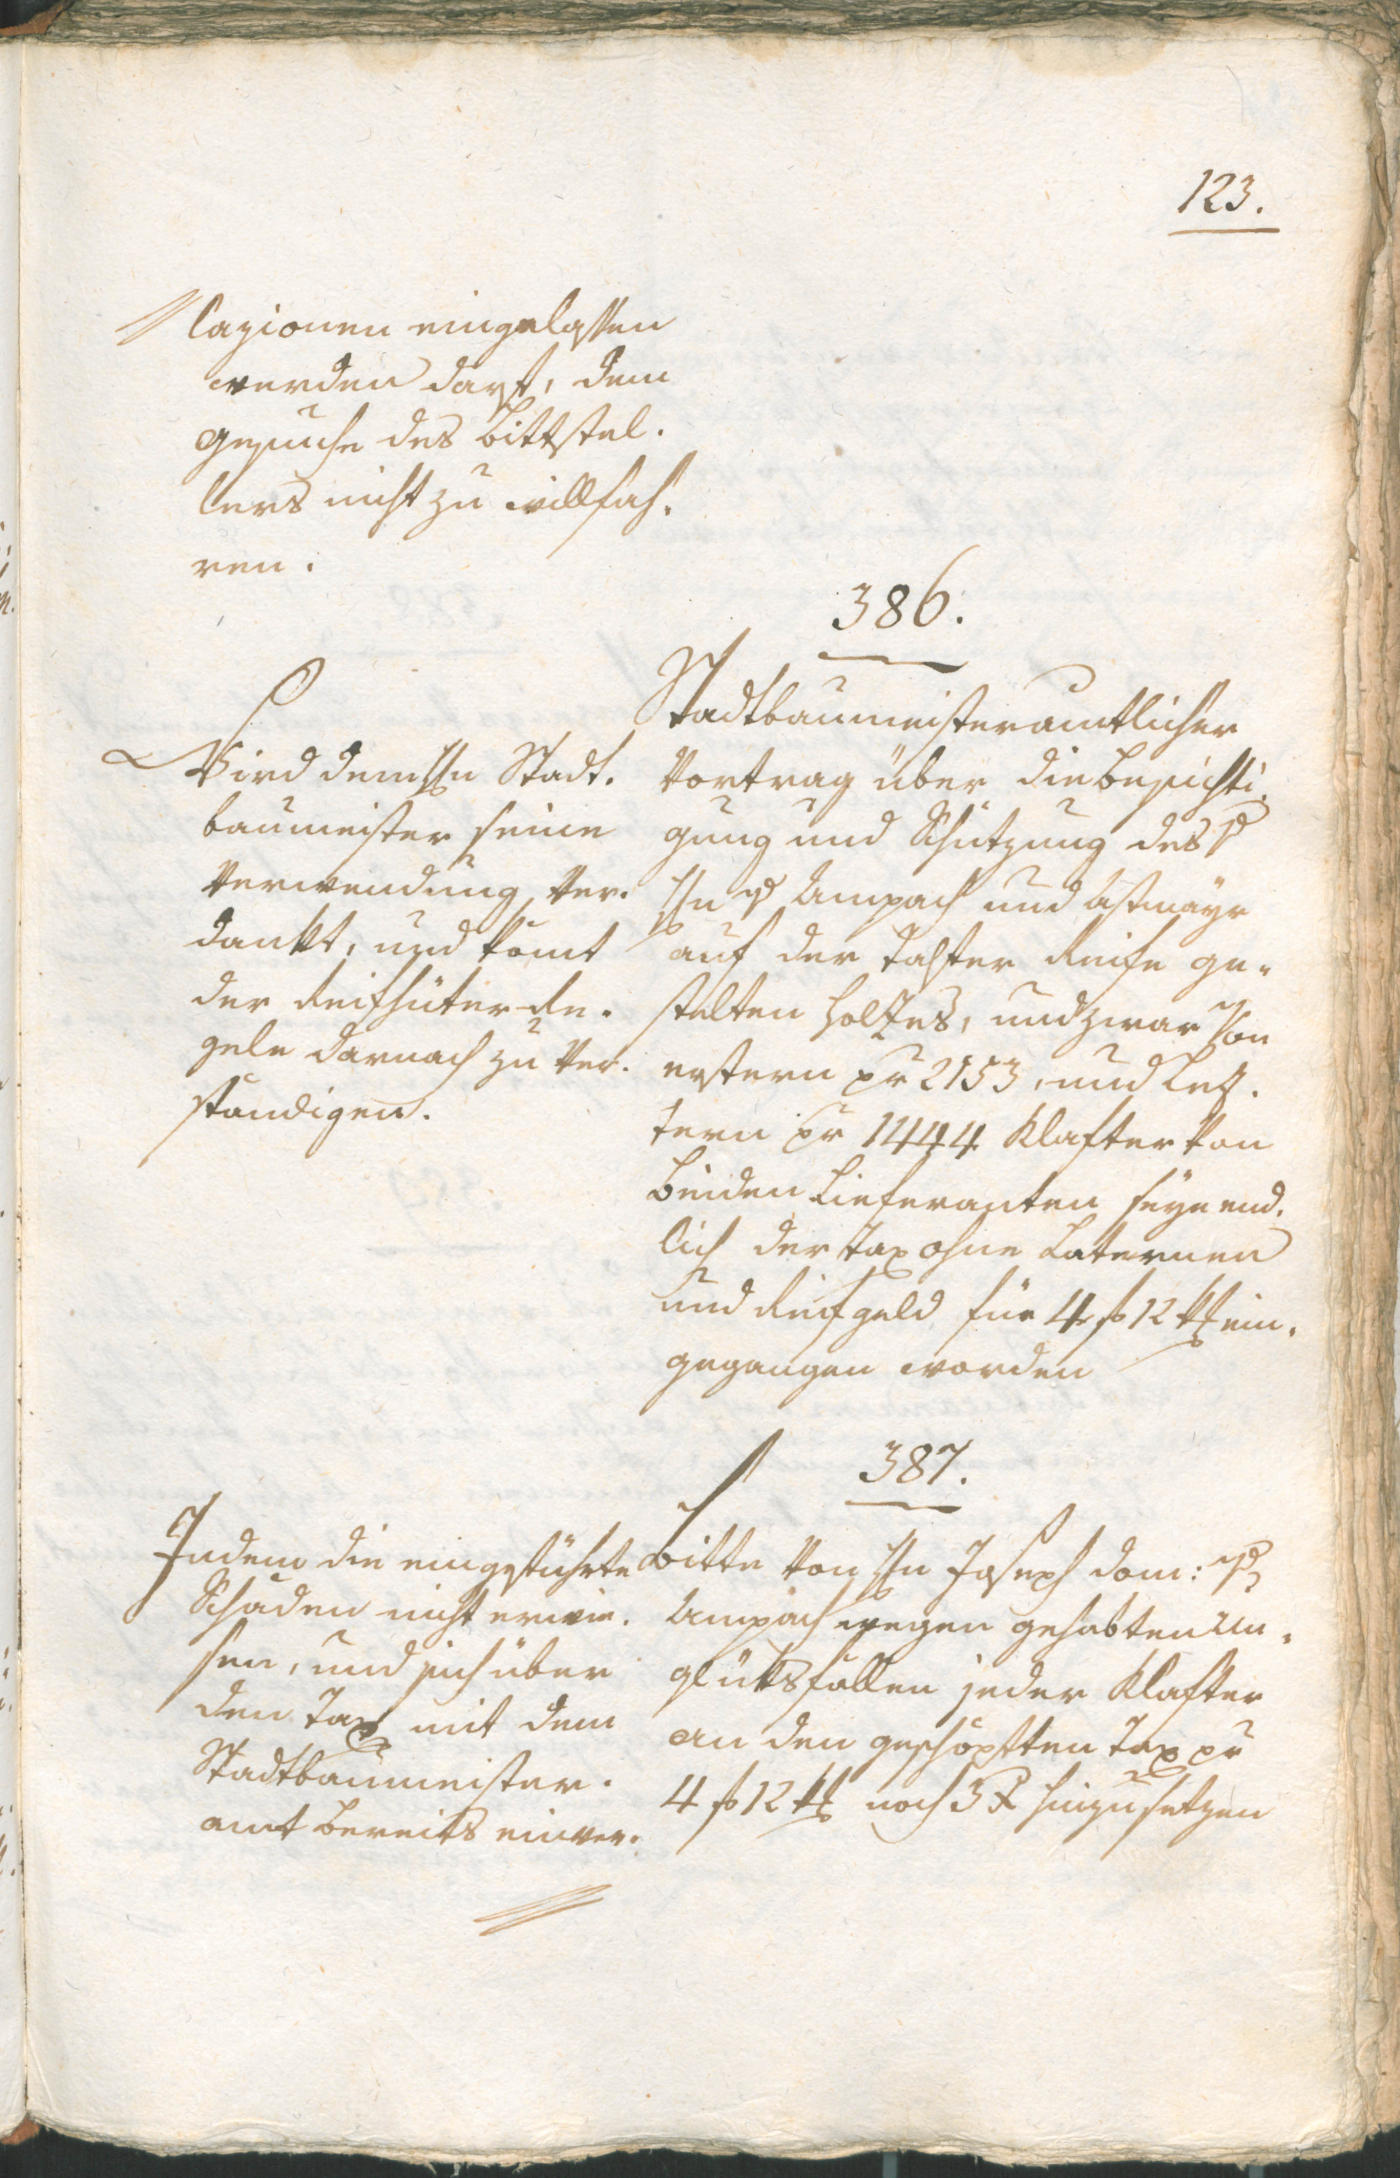 123.
lazionen eingelassen
werden darf, dem
Gesuche des Bittstel.
lers nicht zu willfah.
ren.
386.
Stadtbaumeisteramtlicher
Vortrag über die Besichti.
gung und Schätzung des
Hn v Anpach und
auf der Talfer Reife ge-
stelten Holzes, und zwar von
erstern pr 2153, und Letz.
tern pr 1444 Klafter von
beiden Lieferanten seye end.
lich der Tax ohne Laternen
und Reifgeld für 4 f 12 ein.
gegangen worden
Wird dem Hn Stadt.
baumeister seine
Verwendung ver.
dankt, und komt
der Reifhüter Re.
gele darnach zu ver.
ständigen.
387.
Bitte von Hn Joseph Dom: v
Anpach wegen gehabten Un.
glüksfällen jeder Klafter
an den geschöpften Tax pr
4 f 12 noch 3 x hinzusetzen
Indem die eingeführte
Schäden nicht erwie.
sen, und sich über
den Tax mit dem
Stadtbaumeister.
amt bereits einver.